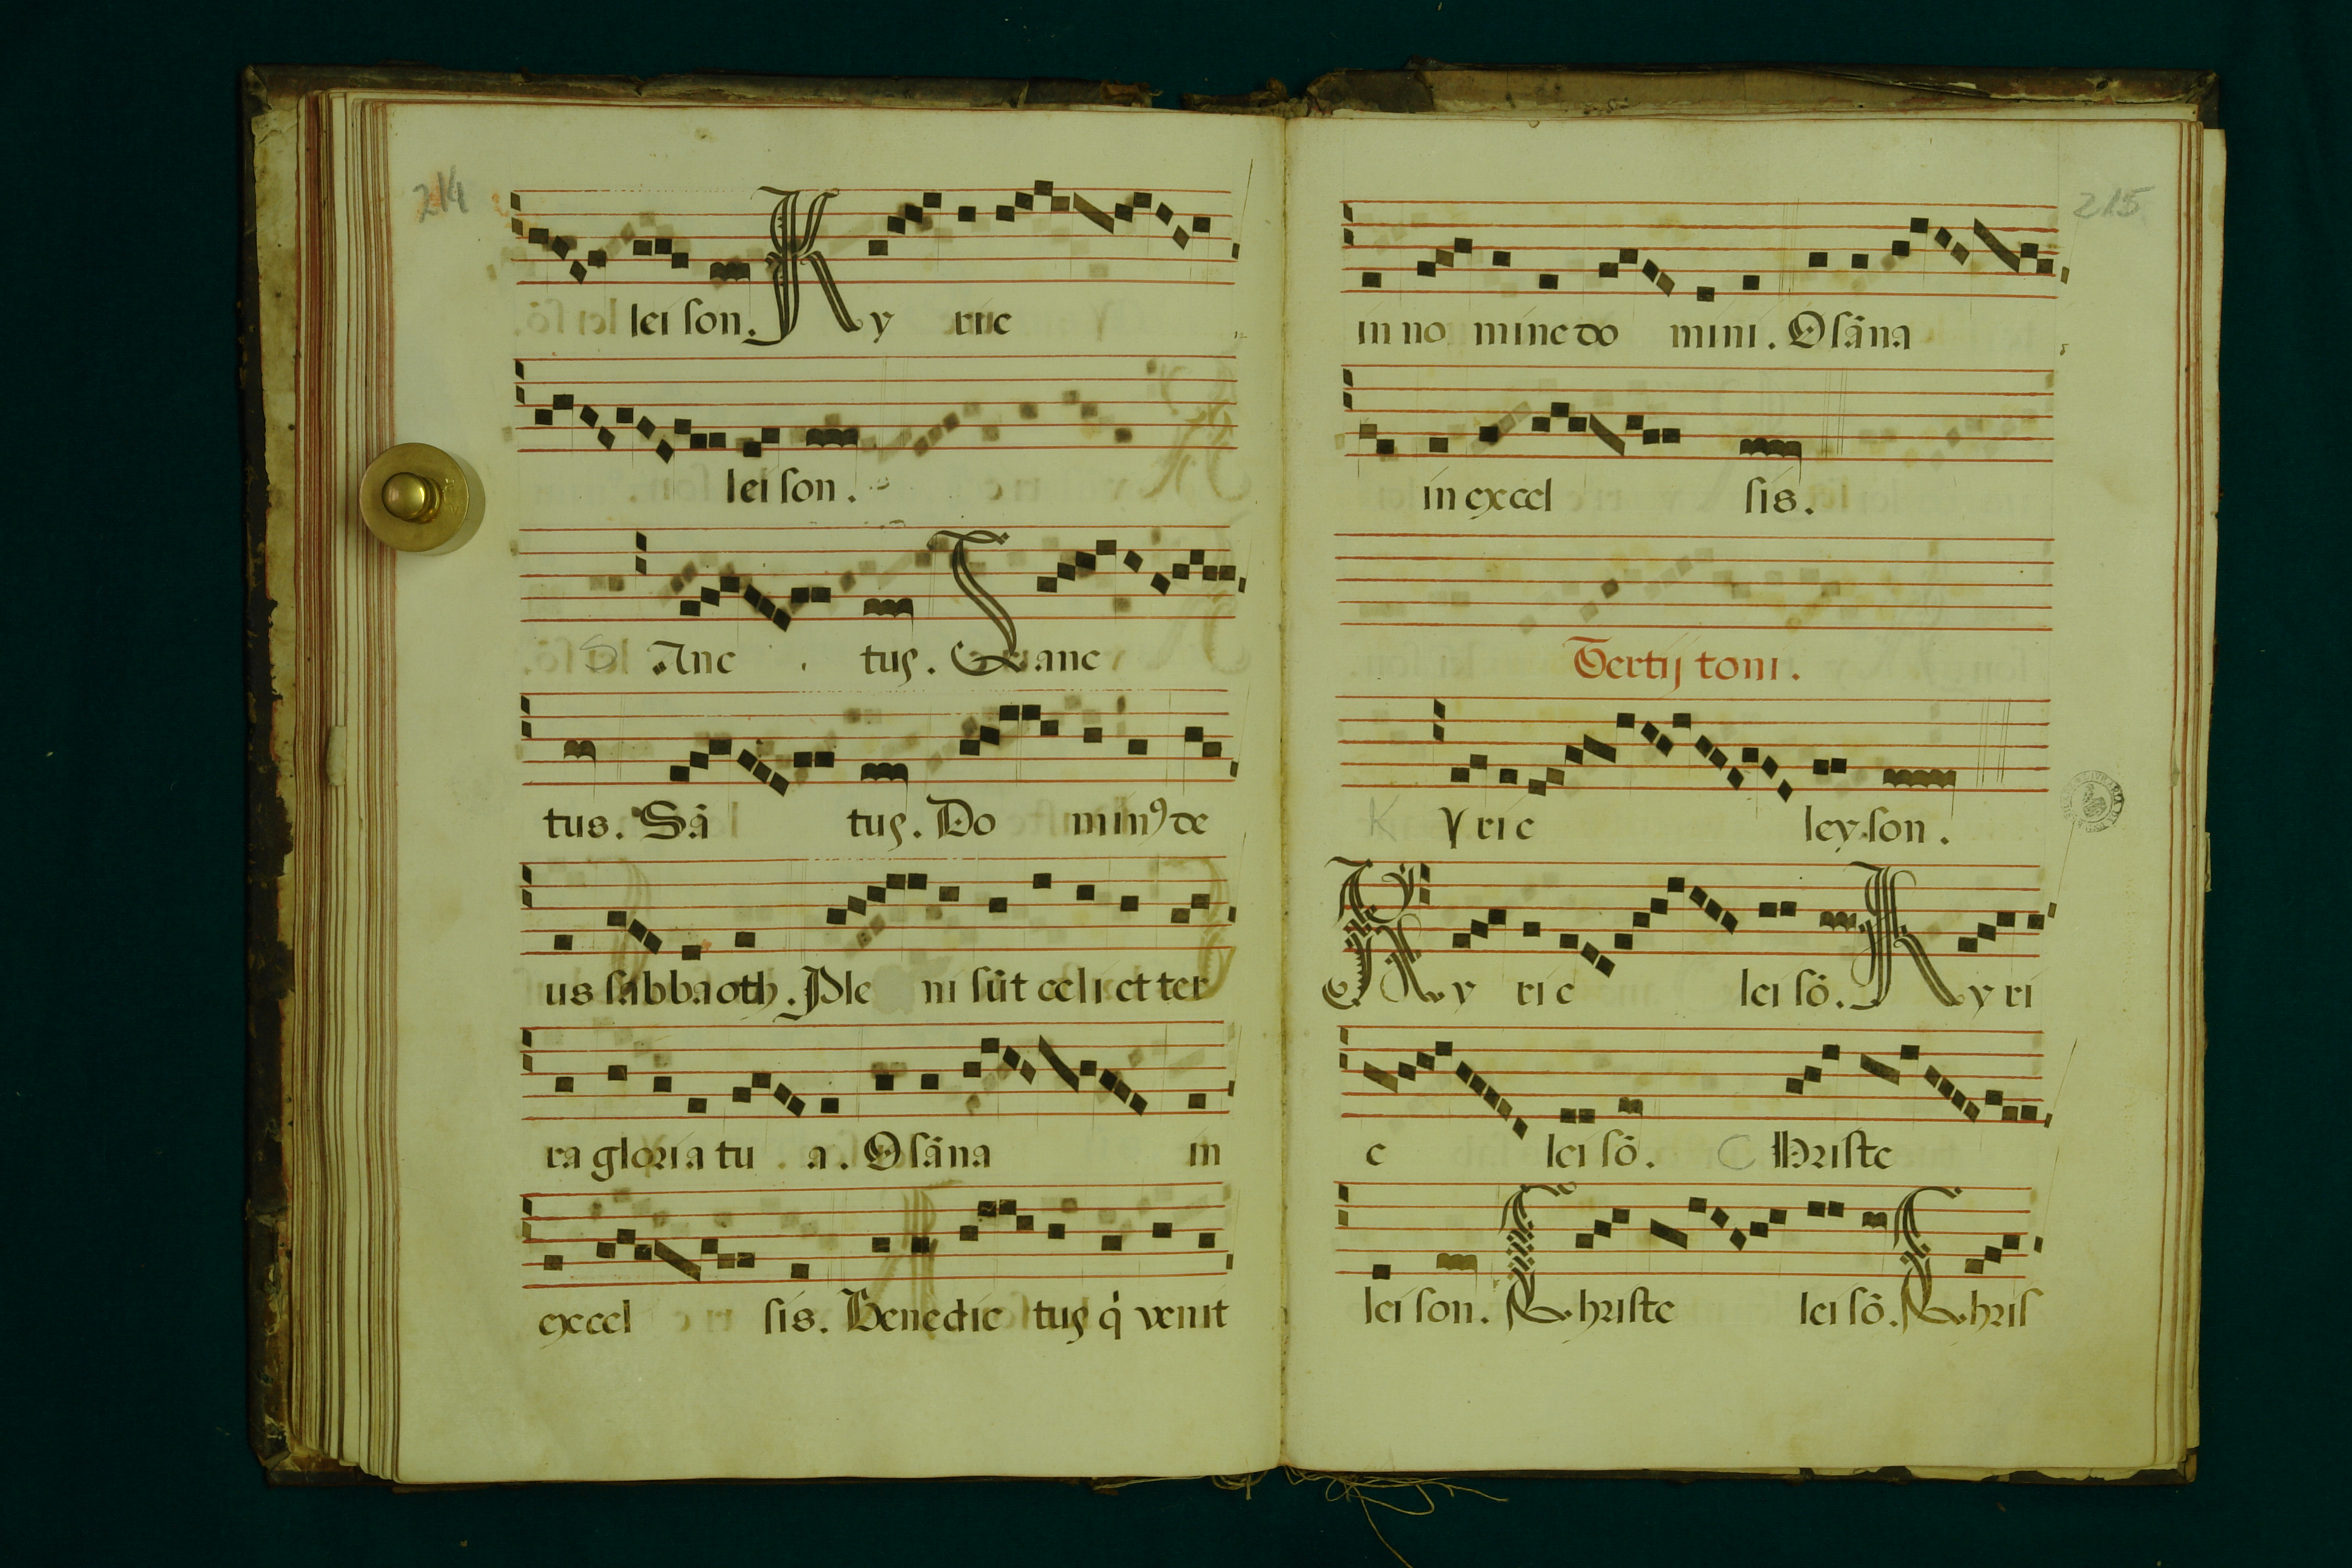 214
lei ſon. Ky rie
lei ſon.
S Anc tus. Sanc
tus. Sā tus. Do minꝰ de
us ſabbaoth. Ple ni ſūt celi et ter
ra gloria tu a. Oſāna in
excel sis. Benedic tus q̇ venit
215
in no mine do mini. Oſāna
in excel ſis.
Tertij toni.
K Yrie leyſon.
Ky rie lei ſō. Ky ri
e lei ſō. C Hriſte
lei ſon. Chriſte lei ſō. Chriſ